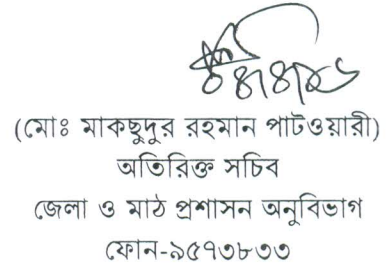 (মোঃ মাকছুদুর রহমান পাটওয়ারী)
অতিরিক্ত সচিব
জেলা ও মাঠ প্রশাসন অনুবিভাগ
ফোন-৯৫৭৩৮৩৩